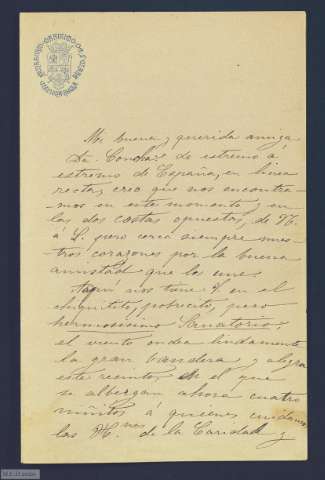 Mi buena y querida amiga
Dª Concha: de estremo á
estremo de España, en linea
recta, creo que nos encontra-
mos en este momento y en
las dos costas opuestas, de N.
á S. pero cerca siempre nues-
tros corazones por la buena
amistad que los une.
Aquí nos tiene V. en el
chiquitito, pobrecito, pero
hermosísimo Sanatorio;
el viento ondea lindamente
la gran bandera y alegra
este recinto, en el que
se albergan ahora cuatro
niñitos á quienes cuidamos
las H.nas de la Caridad y